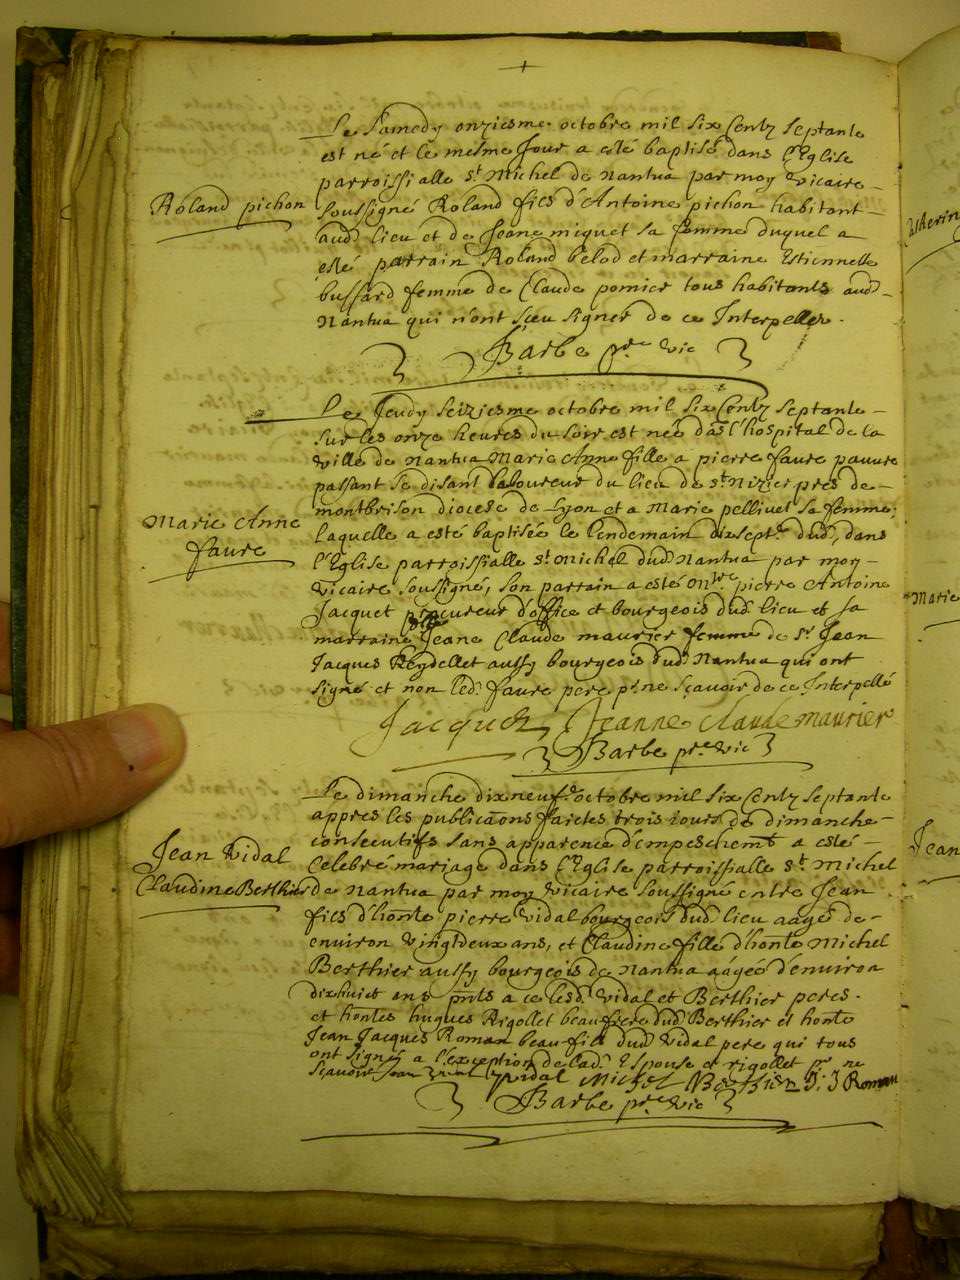 Le Samedy onziesme octobre mil six Centz septante
est né et le mesme Jour a esté baptisé dans l'Eglise
parroissialle st Michel de Nantua par moy vicaire
Roland pichon
soussigné Roland fils d'Antoine pichon habitant
aud lieu et de Jeane miquet sa femme duquel a
esté parrain Roland belod et marraine Estiennette
bussard femme de Claude pomier tous habitants aud
Nantua qui n'ont sçeu signer de ce Interpellez.
Barbe pre vic
Le Jeudy seiziesme octobre mil six Centz septante
sur les onze heures du soir est née dās l'hospital de la
ville de Nantua Marie Anne fille a pierre faure pauure
passant se disant laboureur du lieu de st Nizier pres de
montbrison diocese de Lyon et a Marie pelliuet sa femme,
Marie Anne
faure
laquelle a esté baptisée le Lendemain dixsept. dud, dans
l'Eglise parroissialle st Michel dud Nantua par moy
vicaire soussigné, son parrain a esté Mtre pierre Antoine
Jacquet procureur d'office et bourgeois dud lieu et sa
marraine Jeane Claude maurier femme de sr Jean
Jacques Reydellet aussy bourgeois dud Nantua qui ont
signé et non led. faure pere pr ne sçauoir de ce Interpellé
Jacquet Jeanne claude maurier
Barbe pre vic
Le dimanche dixneuf.e octobre mil six Centz septante
appres les publicāons faictes trois iours de dimanche
consecutifs sans apparence d'empeschemt a esté
Jean Vidal
Claudine Berthier
Celebré mariage dans l'Eglise parroissialle st Michel
de Nantua par moy vicaire soussigné entre Jean
fils d'honte pierre vidal bourgeois dud lieu aagé de
enuiron vingtdeux ans, et Claudine fille d'honte Michel
Berthier aussy bourgeois de Nantua aagée d'enuiron
dixhuict ans pnts a ce lesd. vidal et Berthier peres.
et hontes hugues Rigollet beaufrere dud Berthier et honte
Jean Jacques Roman beau fils dud vidal pere qui tous
ont signés a l'exception de lad. Espouse et rigollet pr ne
sçauoir Jean vidal pvidal Michel Berthier J. J Roman
Barbe pre vic